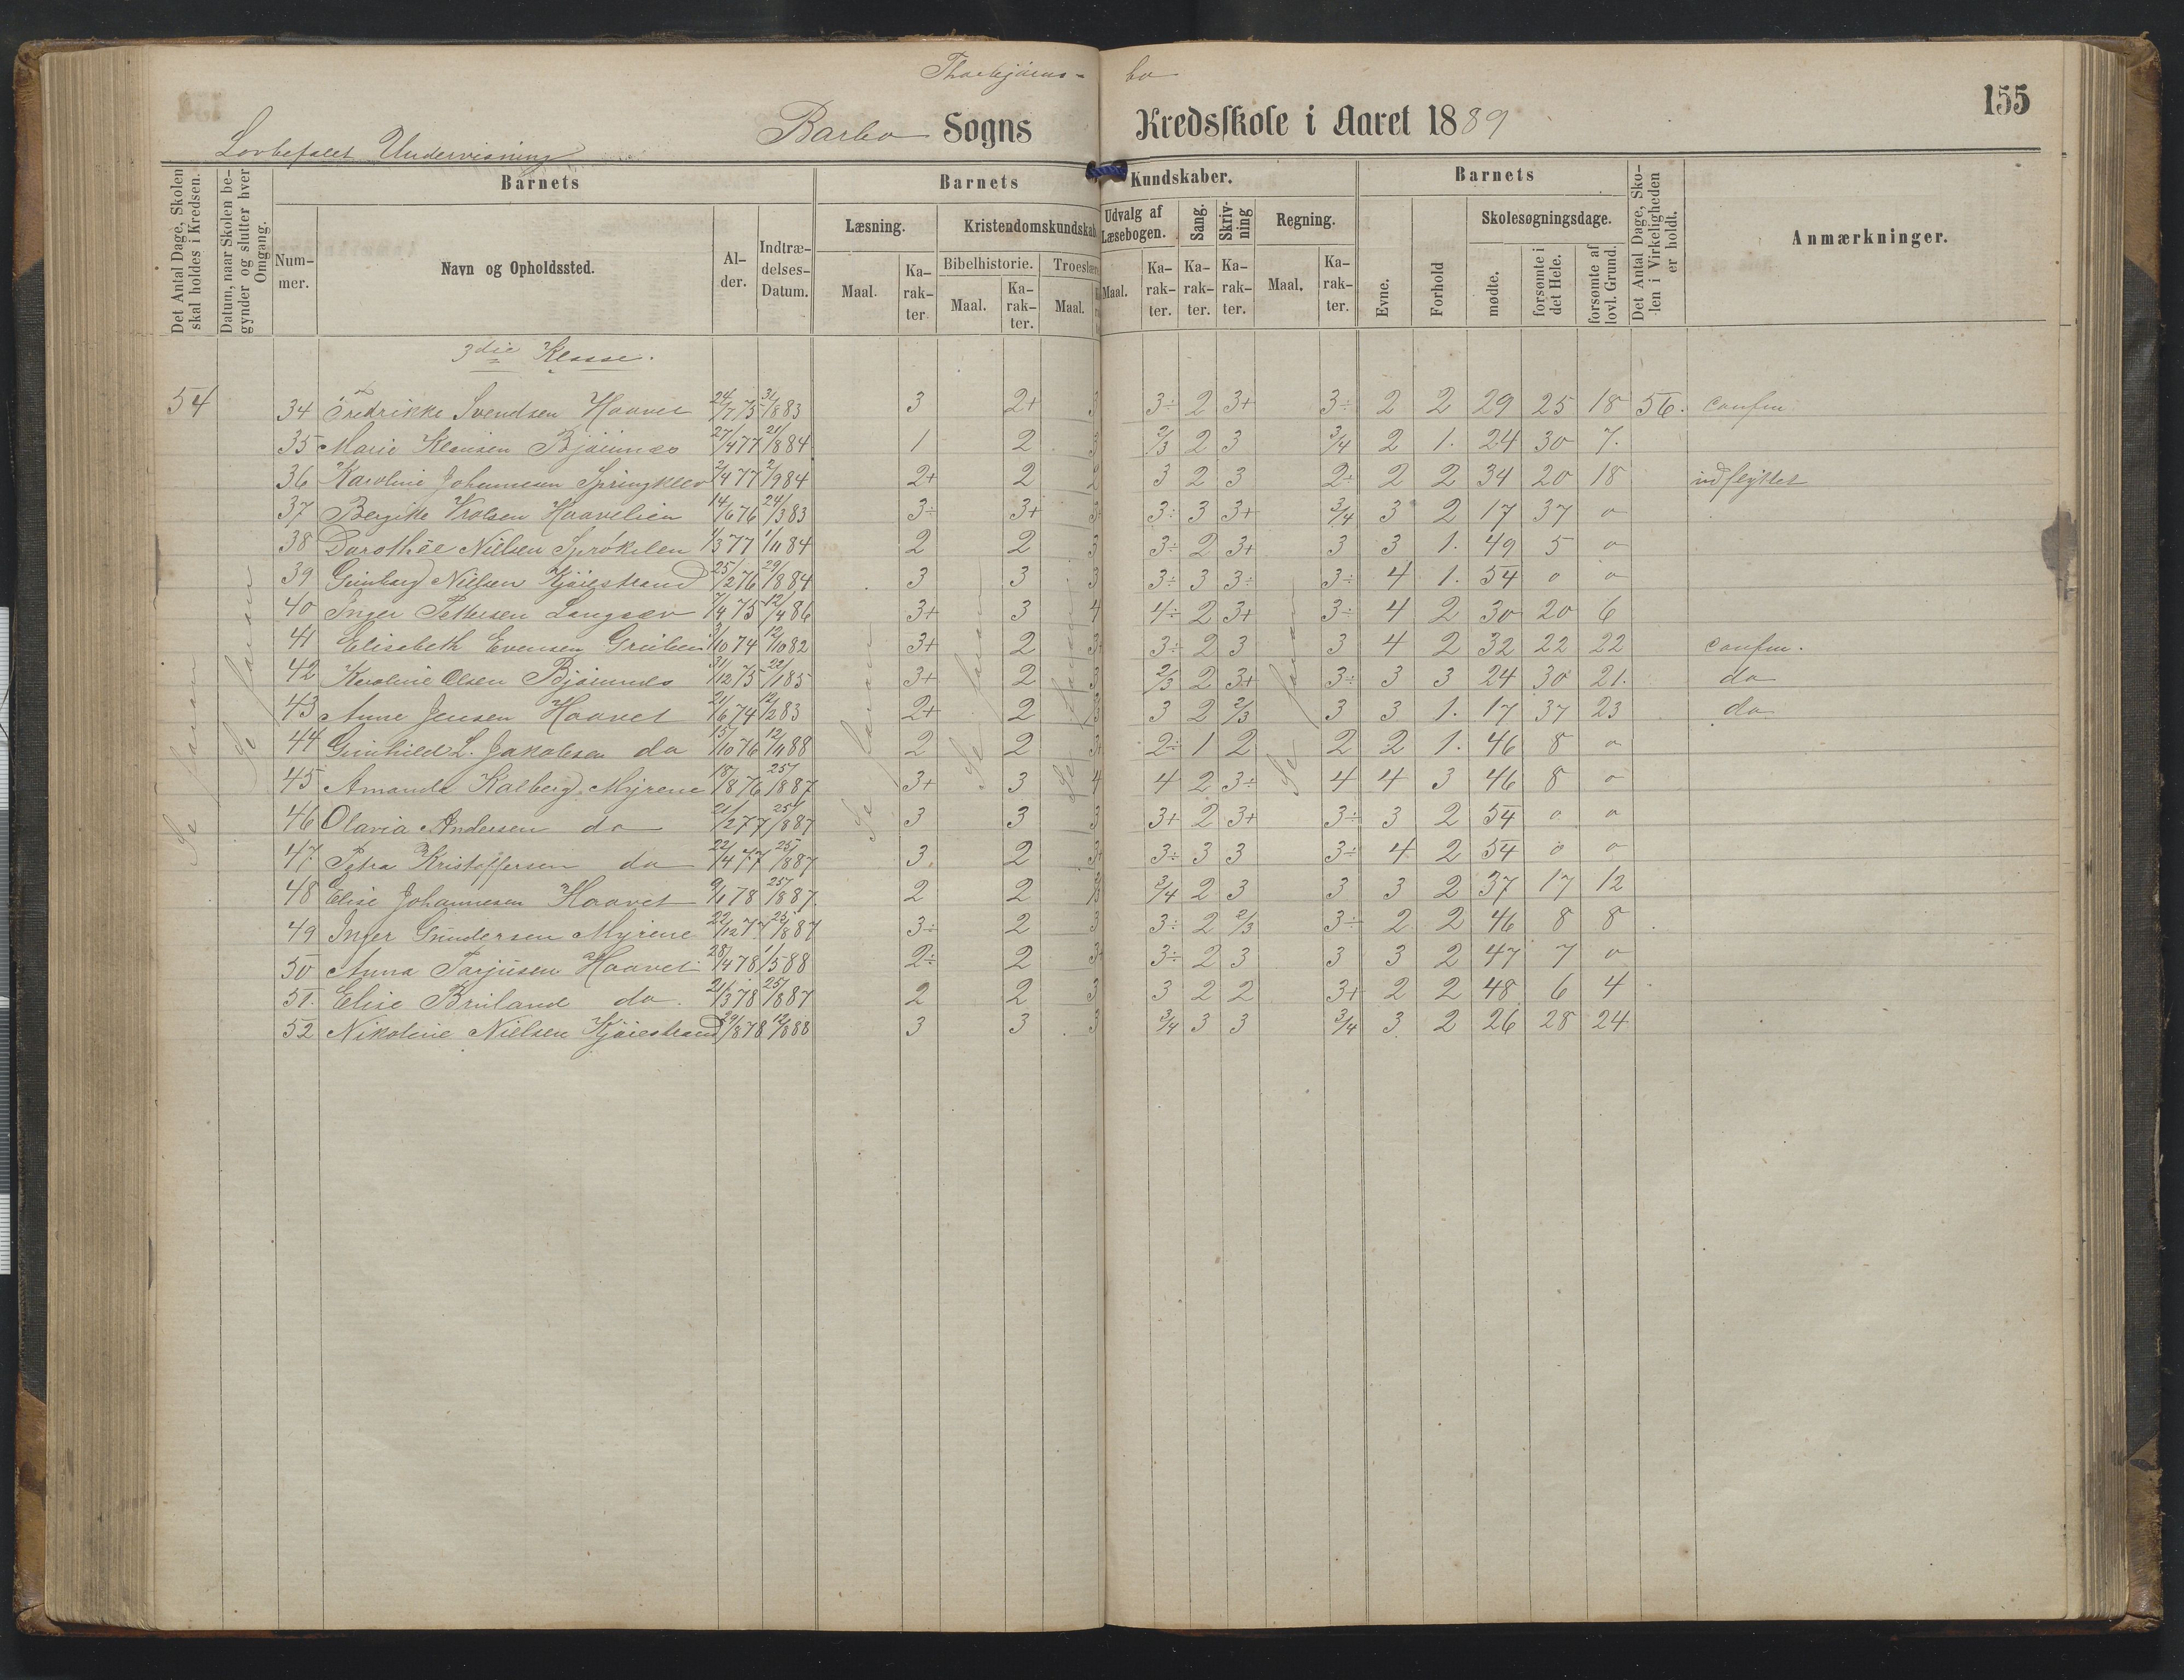 Thorbjørns- bo
155
Barbo Sogns Kredsskole i Aaret 1889
Lovbefalet Undervisning
Det Antal Dage, Skolen skal holdes i Kredsen.
Datum, naar Skolen be-gynder og slutter hver Omgang.
Barnets
Num-mer.
Navn og Opholdssted.
Al-der.
Indtræ-delses-Datum.
Barnets Kundskaber.
Læsning.
Maal.
Ka-rak-ter
Kristendomskundskab
Bibelhistorie.
Maal.
Ka-rak-ter.
Troeslære
Maal.
Udvalg af Læsebogen.
Maal.
Ka-rak-ter.
Sang.
Ka-rak-ter.
Skriv-ning
Ka-rak-ter.
Regning.
Maal.
Ka-rak-ter.
Barnets
Evne.
Forhold
Skolesøgningsdage.
mødte.
forsømte i det Hele.
forsømte af lovl. Grund.
Det Antal Dage, Sko-len i Virkeligheden er holdt.
Anmærkninger.
3die Klasse.
54 34 Fredrikke Svendsen Haavet 24/7 75 31/8 83 3 2+ 3 3÷ 2 3+ 3÷ 2 2 29 25 18 56. confm.
35 Marie Klausen Bjørnnes 27/4 77 21/8 84 1 2 3 2/3 2 3 3/4 2 1. 24 30 7.
36 Karoline Johannesen Springklev 2/4 77 2/9 84 2+ 2 2 3 2 3 2÷ 2 2 34 20 18 udflyttet
37 Bergitte Vrolsen Haavelien 14/6 76 24/3 83 3÷ 3+ 3÷ 3÷ 3 3+ 3/4 3 2 17 37 0
38 Dorothëe Nilsen Sprøkilen 1/3 77 1/11 84 2 2 3 3÷ 2 3+ 3 3 1. 49 5 0
39 Gunborg Nielsen Kjøiestrand 25/2 76 29/8 84 3 3 3 3÷ 3 3÷ 3÷ 4 1. 54 0 0
40 Inger Pettersen Langsæv 7/4 75 12/4 86 3+ 3 4 4÷ 2 3+ 3÷ 4 2 30 20 6
41 Elisabeth Evensen 3/10 74 12/10 82 3+ 2 3+ 3÷ 2 3 3 4 2 32 22 22 confm.
42 Karoline Olsen Bjørnnes 31/12 75 22/1 85 3+ 2 3 2/3 2 3+ 3÷ 3 3 24 30 21. do
43 Anne Jensen Haavet 21/6 74 12/2 83 2+ 2 3 3 2 2/3 3 3 1. 17 37 23 do
44 Gunhild L. Jakobsen do 15/10 76 12/11 88 2 2 3+ 2÷ 1 2 2 2 1. 46 8 0
45 Amanda Kalberg Myrene 18/8 76 25/8 87 3+ 3 4 4 2 3÷ 4 4 3 46 8 0
46 Olavia Andersen do 21/2 77 25/8 87 3 3 3 3+ 2 3+ 3÷ 3 2 54 0 0
47. Petra Kristoffersen do 22/4 77 25/8 87 3. 2 3+ 3÷ 3 3 3÷ 4 2 54 0 0
48 Elise Johannesen Haavet 9/1 78 25/8 87. 2 2 3/4 2 3 3 3 2 37 17 12
49 Inger Gundersen Myrene 22/12 77 25/8 87 3÷ 2 3 3÷ 2 2/3 3÷ 2 2 46 8 8
50 Anna Tarjusen Haavet 28/4 78 1/5 88 2÷ 2 3+ 3÷ 2 3 3 3 2 47 7 0
51. Elise Bruland do. 21/3 78 25/8 87 2 2 3 3 2 2 3+ 2 2 48 6 4
52 Nikoline Nielsen Kjøiestrand 29/8 78 12/8 88 3 3 3 3/4 3 3 3/4 3 2 26 28 24
Se foran
Se foran
Se foran
Se foran
Se foran
Se foran